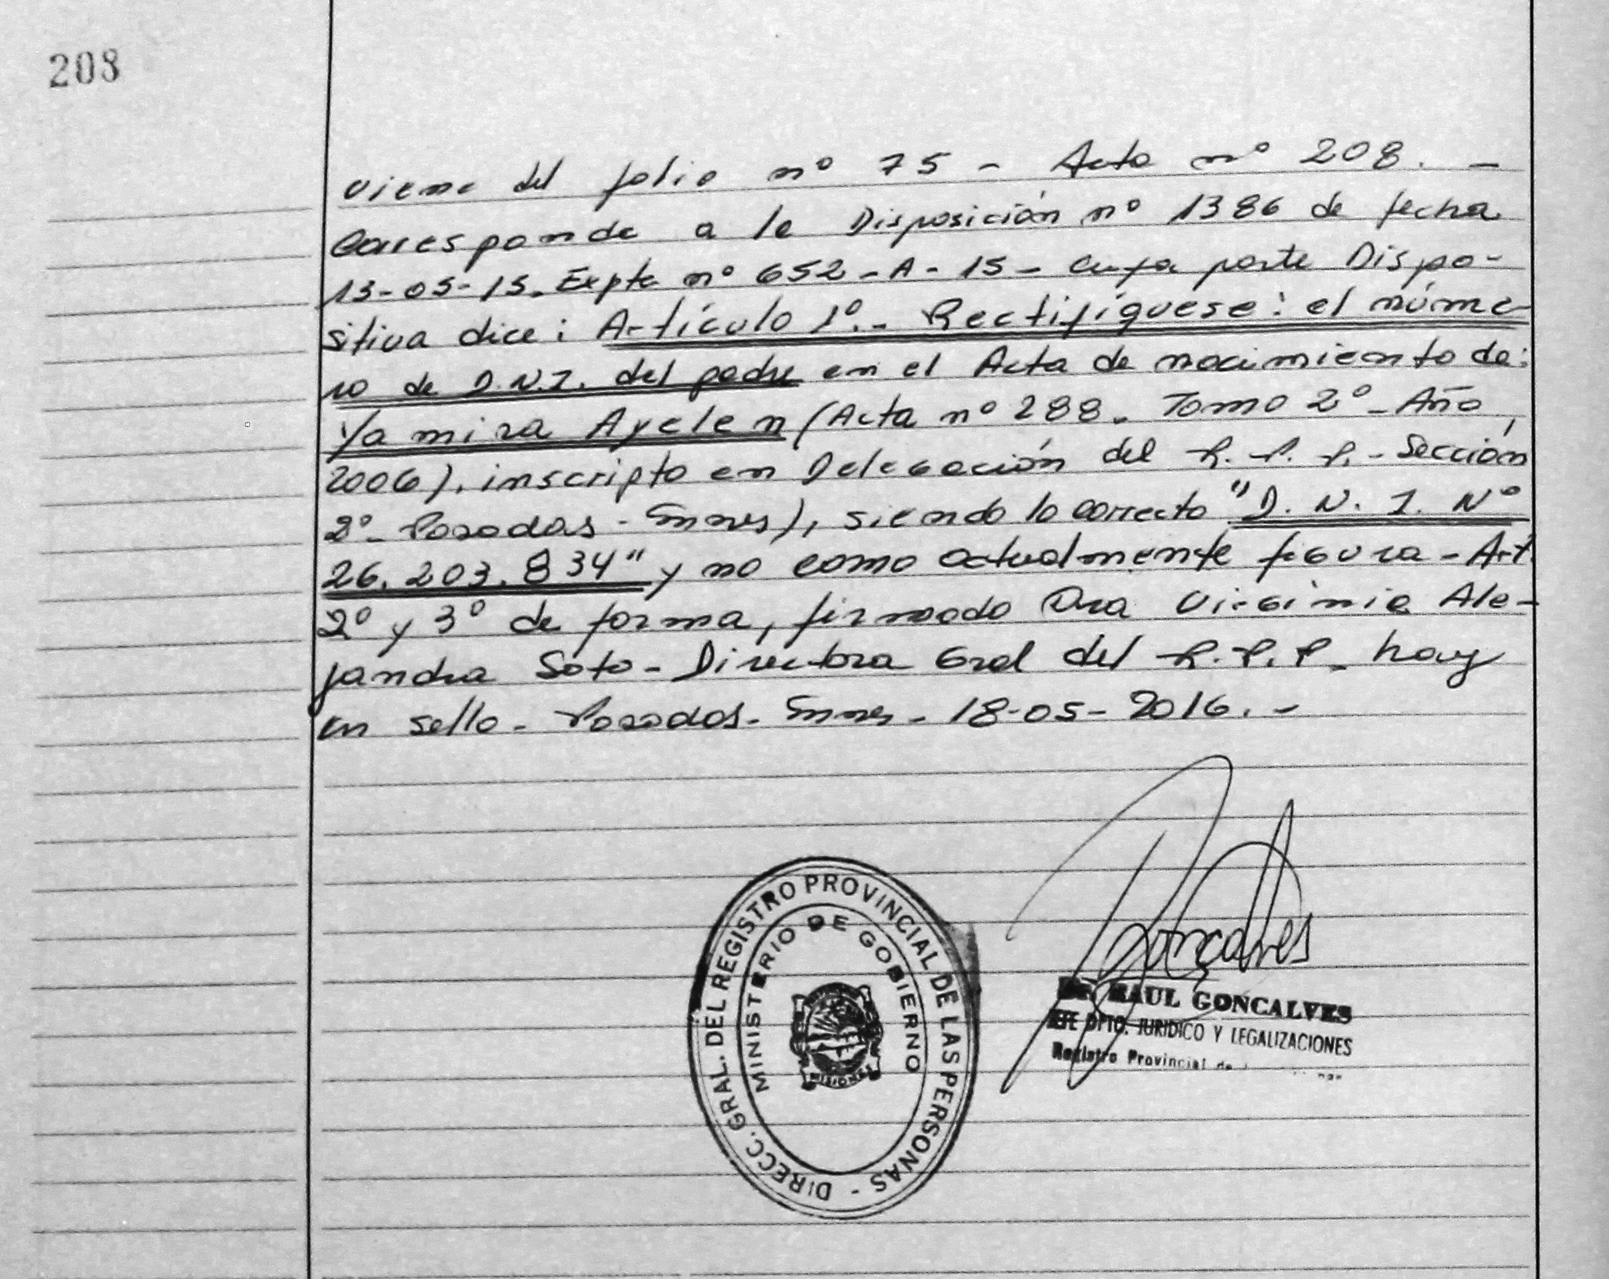 208
viene del folio nº 75 - Acta nº 208. -
Corresponde a la Disposición nº 1386 de fecha
13-05-15. Expte nº 652-A-15- cuya parte Dispo-
sitiva dice: Artículo 1º.- Rectifíquese: el núme-
ro de D.N.I. del padre en el Acta de nacimiento de:
Yamira Ayelen (Acta nº 288. Tomo 2º-Año,
2006), inscripto en Delegación del R. P. P.-Sección
2º- Posadas - Mnes), siendo lo correcto "D. N. I. Nº
26.203.834" y no como actualmente figura - Art.
2º y 3º de forma, firmado Dra Virginia Ale-
jandra Soto - Directora Gral del R.P.P. hay
un sello - Posadas - Mnes - 18-05-2016. -
DIRECC. GRAL. DEL REGISTRO PROVINCIAL DE LAS PERSONAS -
MINISTERIO DE GOBIERNO
MISIONES
Goncalves
Dr. RAUL GONCALVES
JEFE DPTO. JURIDICO Y LEGALIZACIONES
Registro Provincial de